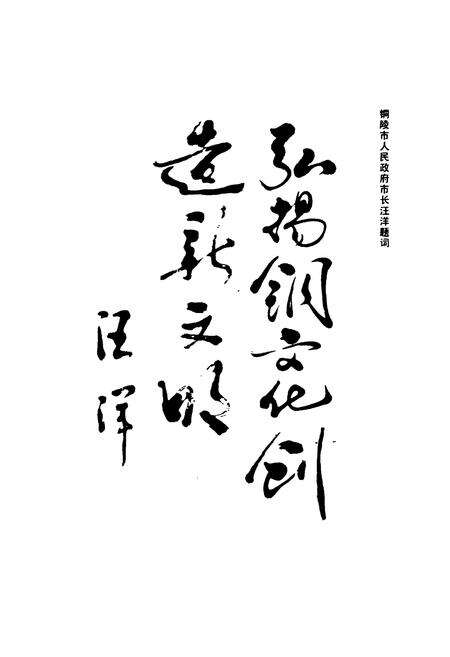 铜陵市人民政府市长汪洋题词
弘揚銅文化創
造新文明
汪洋